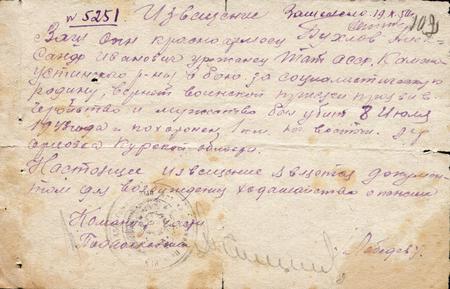 № 5251 Извещение
109
Ваш сын красноармеец Пухлов Алек-
сандр Иванович уроженец Тат. асср, Камско
Устинского р-на в бою за социалистическую
родину, верный воинской присяге проявив
геройство и мужество был убит 8 июля
1943 года и похоронен км. на восток. дер
Курской области.
Настоящее извещение является докумен-
том для возбуждения ходатайства о пенсии
Командир части
Подполковник Лебедев